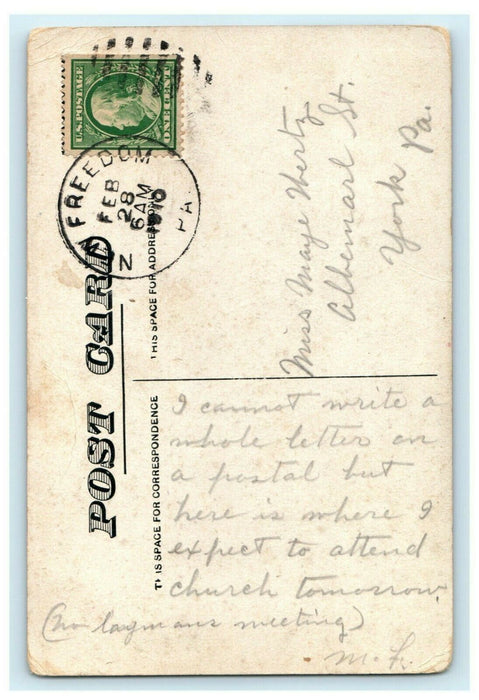 U.S. POSTAGE
ONE CENT
N FREEDOM PA.
FEB
28
6 AM
1910
N
POST CARD
THIS SPACE FOR ADDRESS ONLY
Miss Maye Wertz
Albemarl St.
York Pa.
THIS SPACE FOR CORRESPONDENCE
I cannot write a
whole letter on
a postal but
here is where I
expect to attend
church tomorrow.
(no laymans meeting)